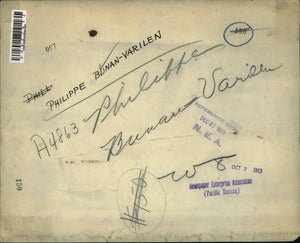 OCT
150
PHILL
PHILIPPE BUNAN-VARILEN
Philippe
Bunan Varilen
A4863
REFERENCE DEPT.
N. E. A.
OCT 2
Newspaper Enterprise Association
(Pacific Bureau)
150